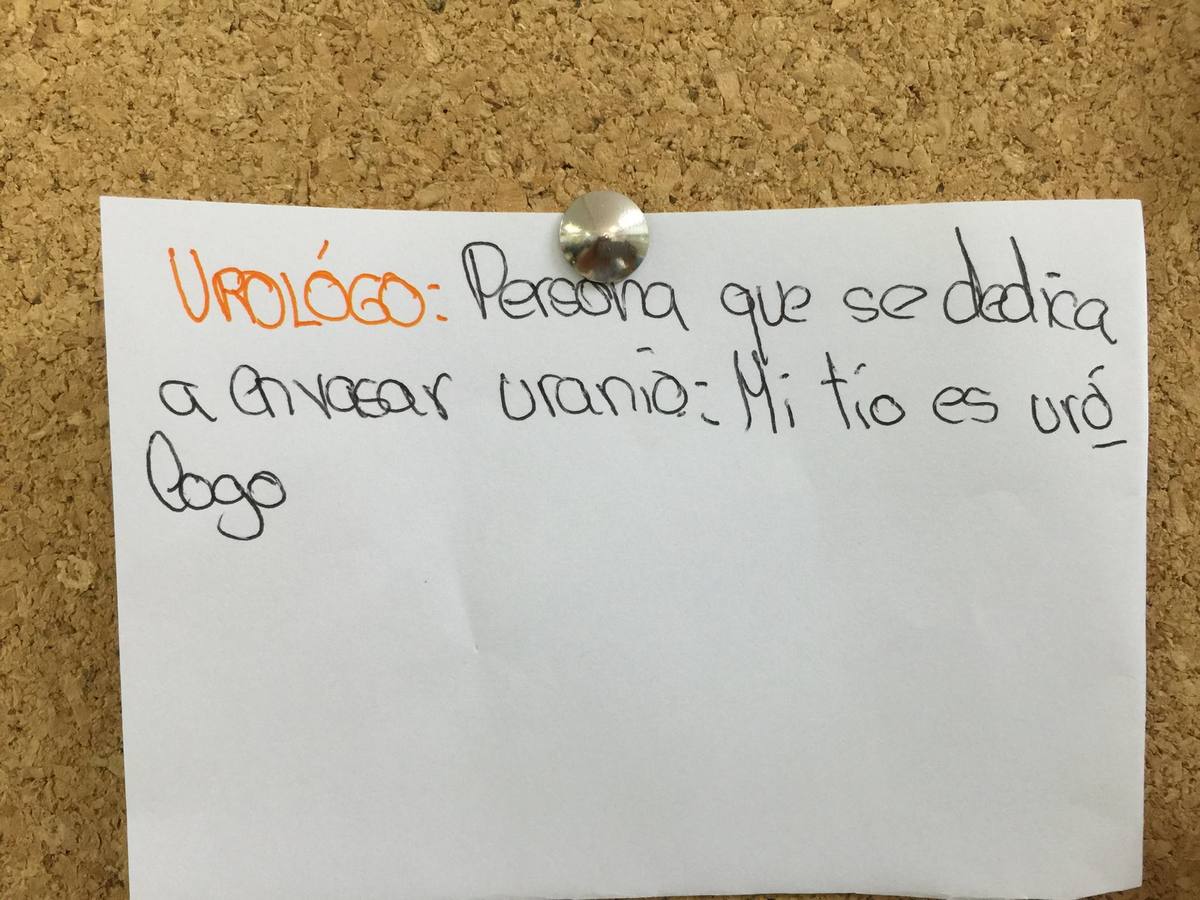 UROLÓGO: Persona que se dedica
a envasar uranio: Mi tío es uró
logo